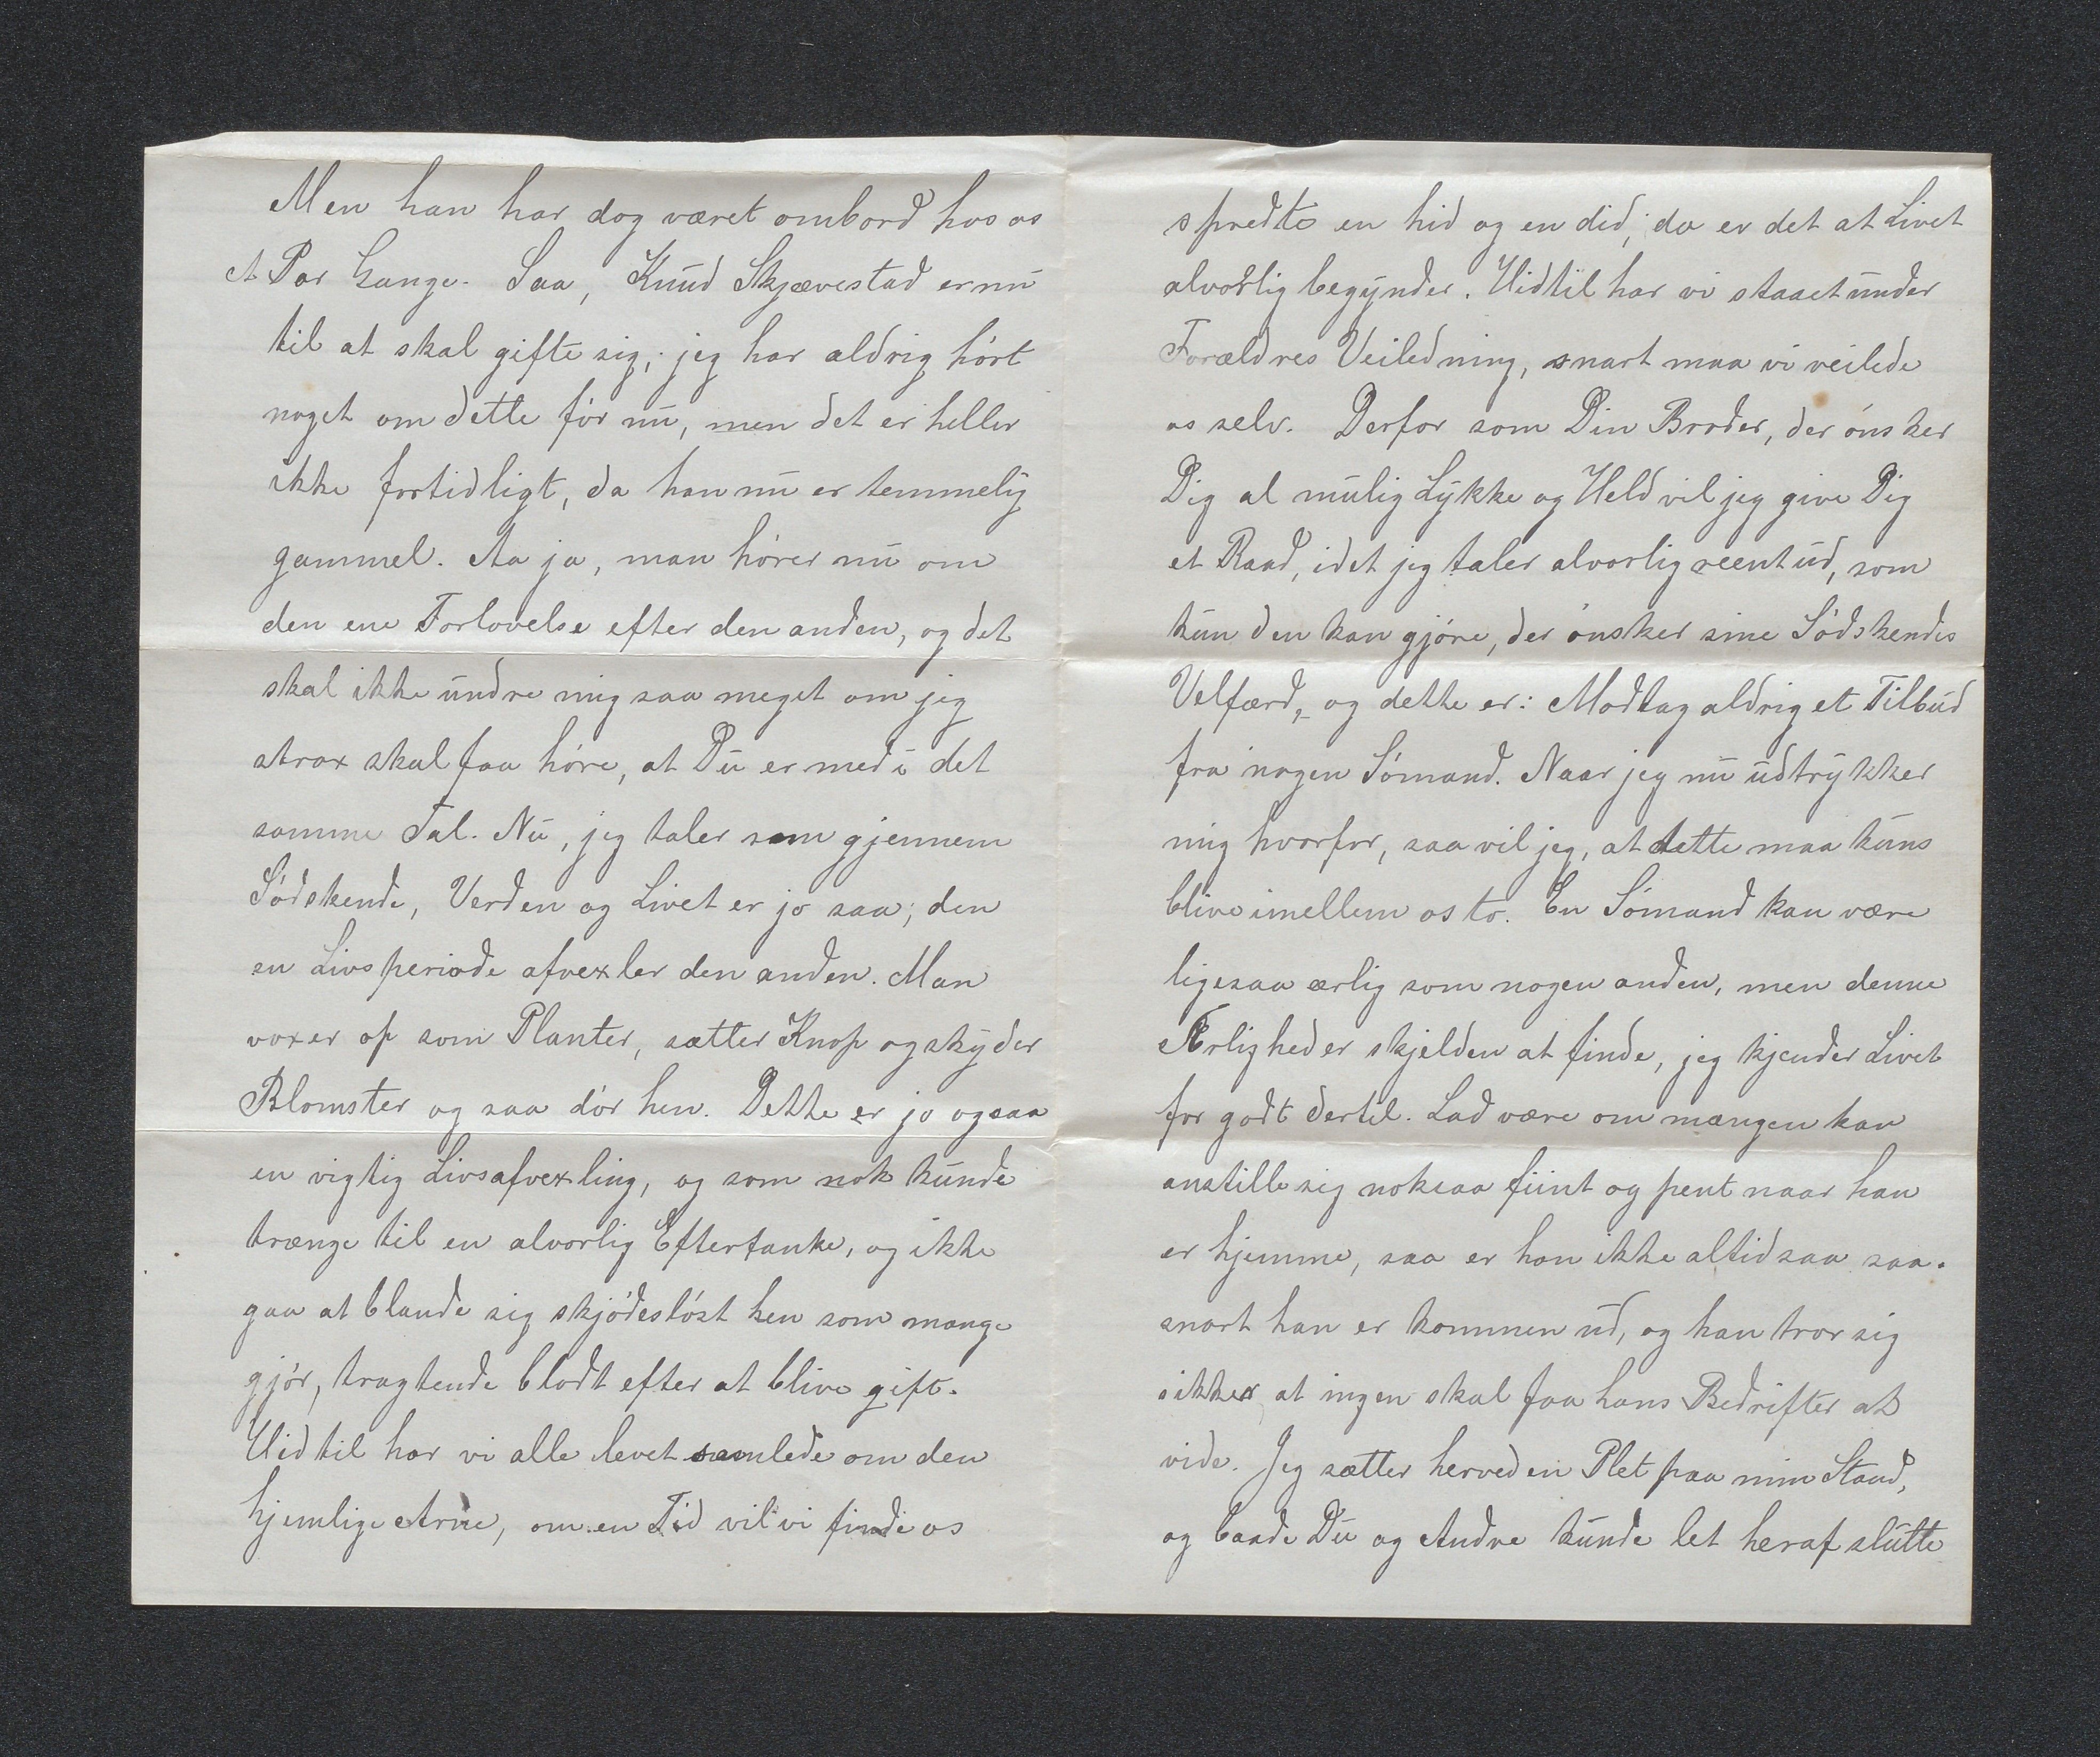 Men han har dog været ombord hos os
et Par Gange. Saa, Knud Skjævestad er nu
til at skal gifte sig; jeg har aldrig hørt
noget om dette før nu, men det er heller
ikke fortidligt, da han nu er temmelig
gammel. Aa ja, man hører nu om
den ene Forlovelse efter den anden, og det
skal ikke undre mig saa meget om jeg
strax skal faa høre, at Du er med i det
samme Tal. Nu, jeg taler som gjennem
Sødskende, Verden og Livet er jo saa; den
en Livsperiode afvexler den anden. Man
voxer op som Planter, sætter Knop og skyder
Blomster og saa dør hen. Dette er jo ogsaa
en vigtig Livsafvexling, og som nok kunde
trænge til en alvorlig Eftertanke, og ikke
gaa at blande sig skjødesløst hen som mange
gjør, tragtende blodt efter at blive gift.
Hidtil har vi alle levet samlede om den
hjemlige Arne, om en Tid vil vi finde os
spredte en hid og en did; da er det at Livet
alvorlig begynder. Hidtil har vi staaet under
Forældres Veiledning, snart maa vi veilede
os selv. Derfor som Din Broder, der ønsker
Dig al mulig Lykke og Held vil jeg give Dig
et Raad, idet jeg taler alvorlig reent ud, som
kun den kan gjøre, der ønsker sine Sødskendes
Velfærd, og dette er: Modtag aldrig et Tilbud
fra nogen Sømand. Naar jeg nu udtrykker
mig hvorfor, saa vil jeg, at dette maa kuns
blive imellem os to. En Sømand kan være
ligesaa ærlig som nogen anden, men denne
Ærlighed er skjelden at finde, jeg kjender Livet
for godt dertil. Lad være om mangen kan
anstille sig noksaa fiint og pent naar han
er hjemme, saa er han ikke altid saa saa-
snart han er kommen ud, og han tror sig
sikker at ingen skal faa hans Bedrifter at
vide. Jeg sætter herved en Plet paa min Stand,
og baade Du og Andre kunde let heraf slutte